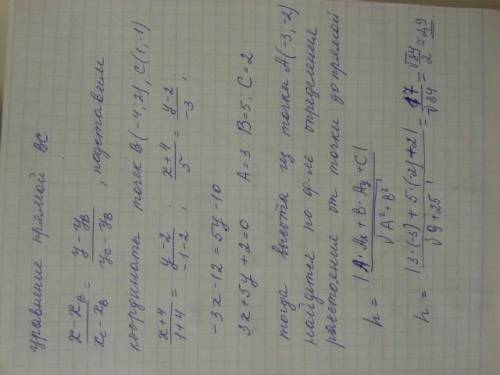 уравнение прямой BC
x-x_B / x_C-x_B = y-y_B / y_C-y_B, подставим
координаты точек B(-4,2), C(1,-1)
x+4 / 1+4 = y-2 / -1-2, x+4 / 5 = y-2 / -3,
-3x-12=5y-10
3x+5y+2=0 A=3 B=5, C=2
тогда высота из точки A(-3,-2)
найдется по ф-ле определения
расстояния от точки до прямой
h = |A·A₁+B·A₂+C| / √A²+B²
h = |3·(-3)+5·(-2)+2| / √9+25 = 17 / √34 = √34 / 2 = 2,9